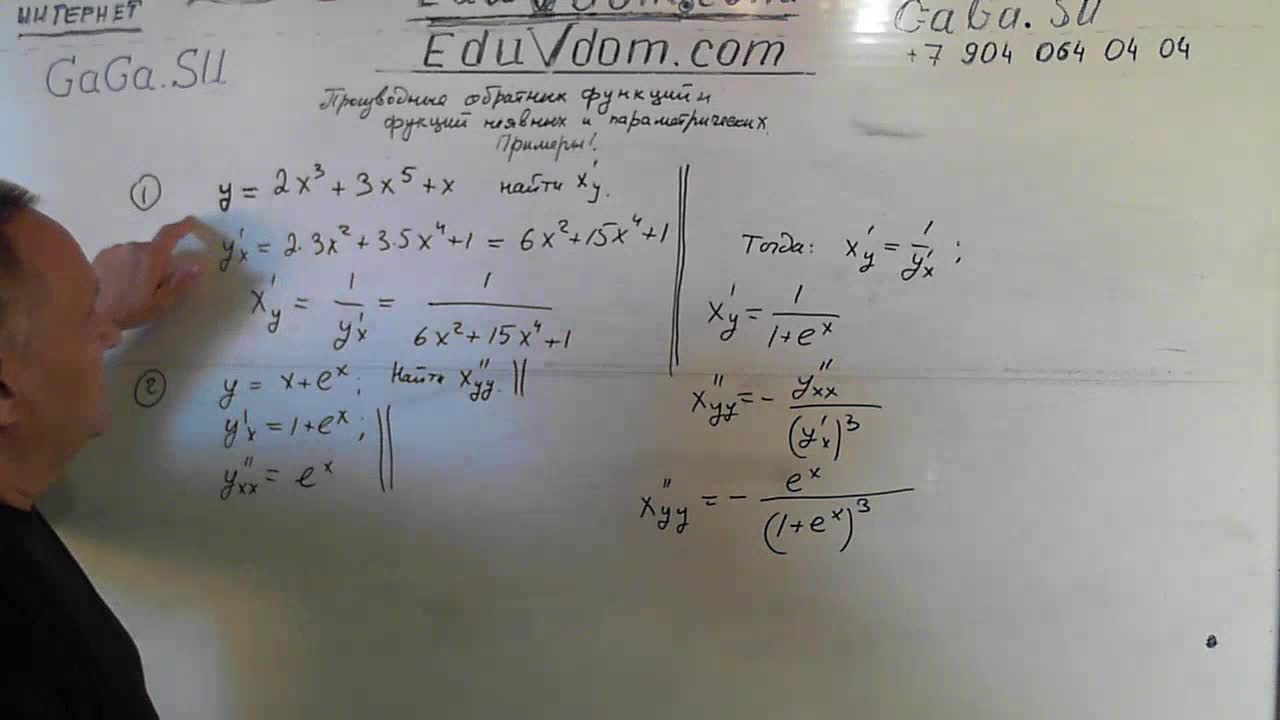 ИНТЕРНЕТ
GaGa.SU
EduVdom.com
GaGa.SU
+7 904 064 04 04
Производные обратных функций и
фукций неявных и параметрических.
Примеры!
① y = 2x³ + 3x⁵ + x найти x'y.
y'x = 2·3x² + 3·5x⁴ + 1 = 6x² + 15x⁴ + 1
x'y = 1/y'x = 1/(6x² + 15x⁴ + 1)
② y = x + eˣ; Найти x''yy. ||
y'x = 1 + eˣ;
y''xx = eˣ
Тогда: x'y = 1/y'x ;
x'y = 1/(1+eˣ)
x''yy = - y''xx/(y'x)³
x''yy = - eˣ/(1+eˣ)³